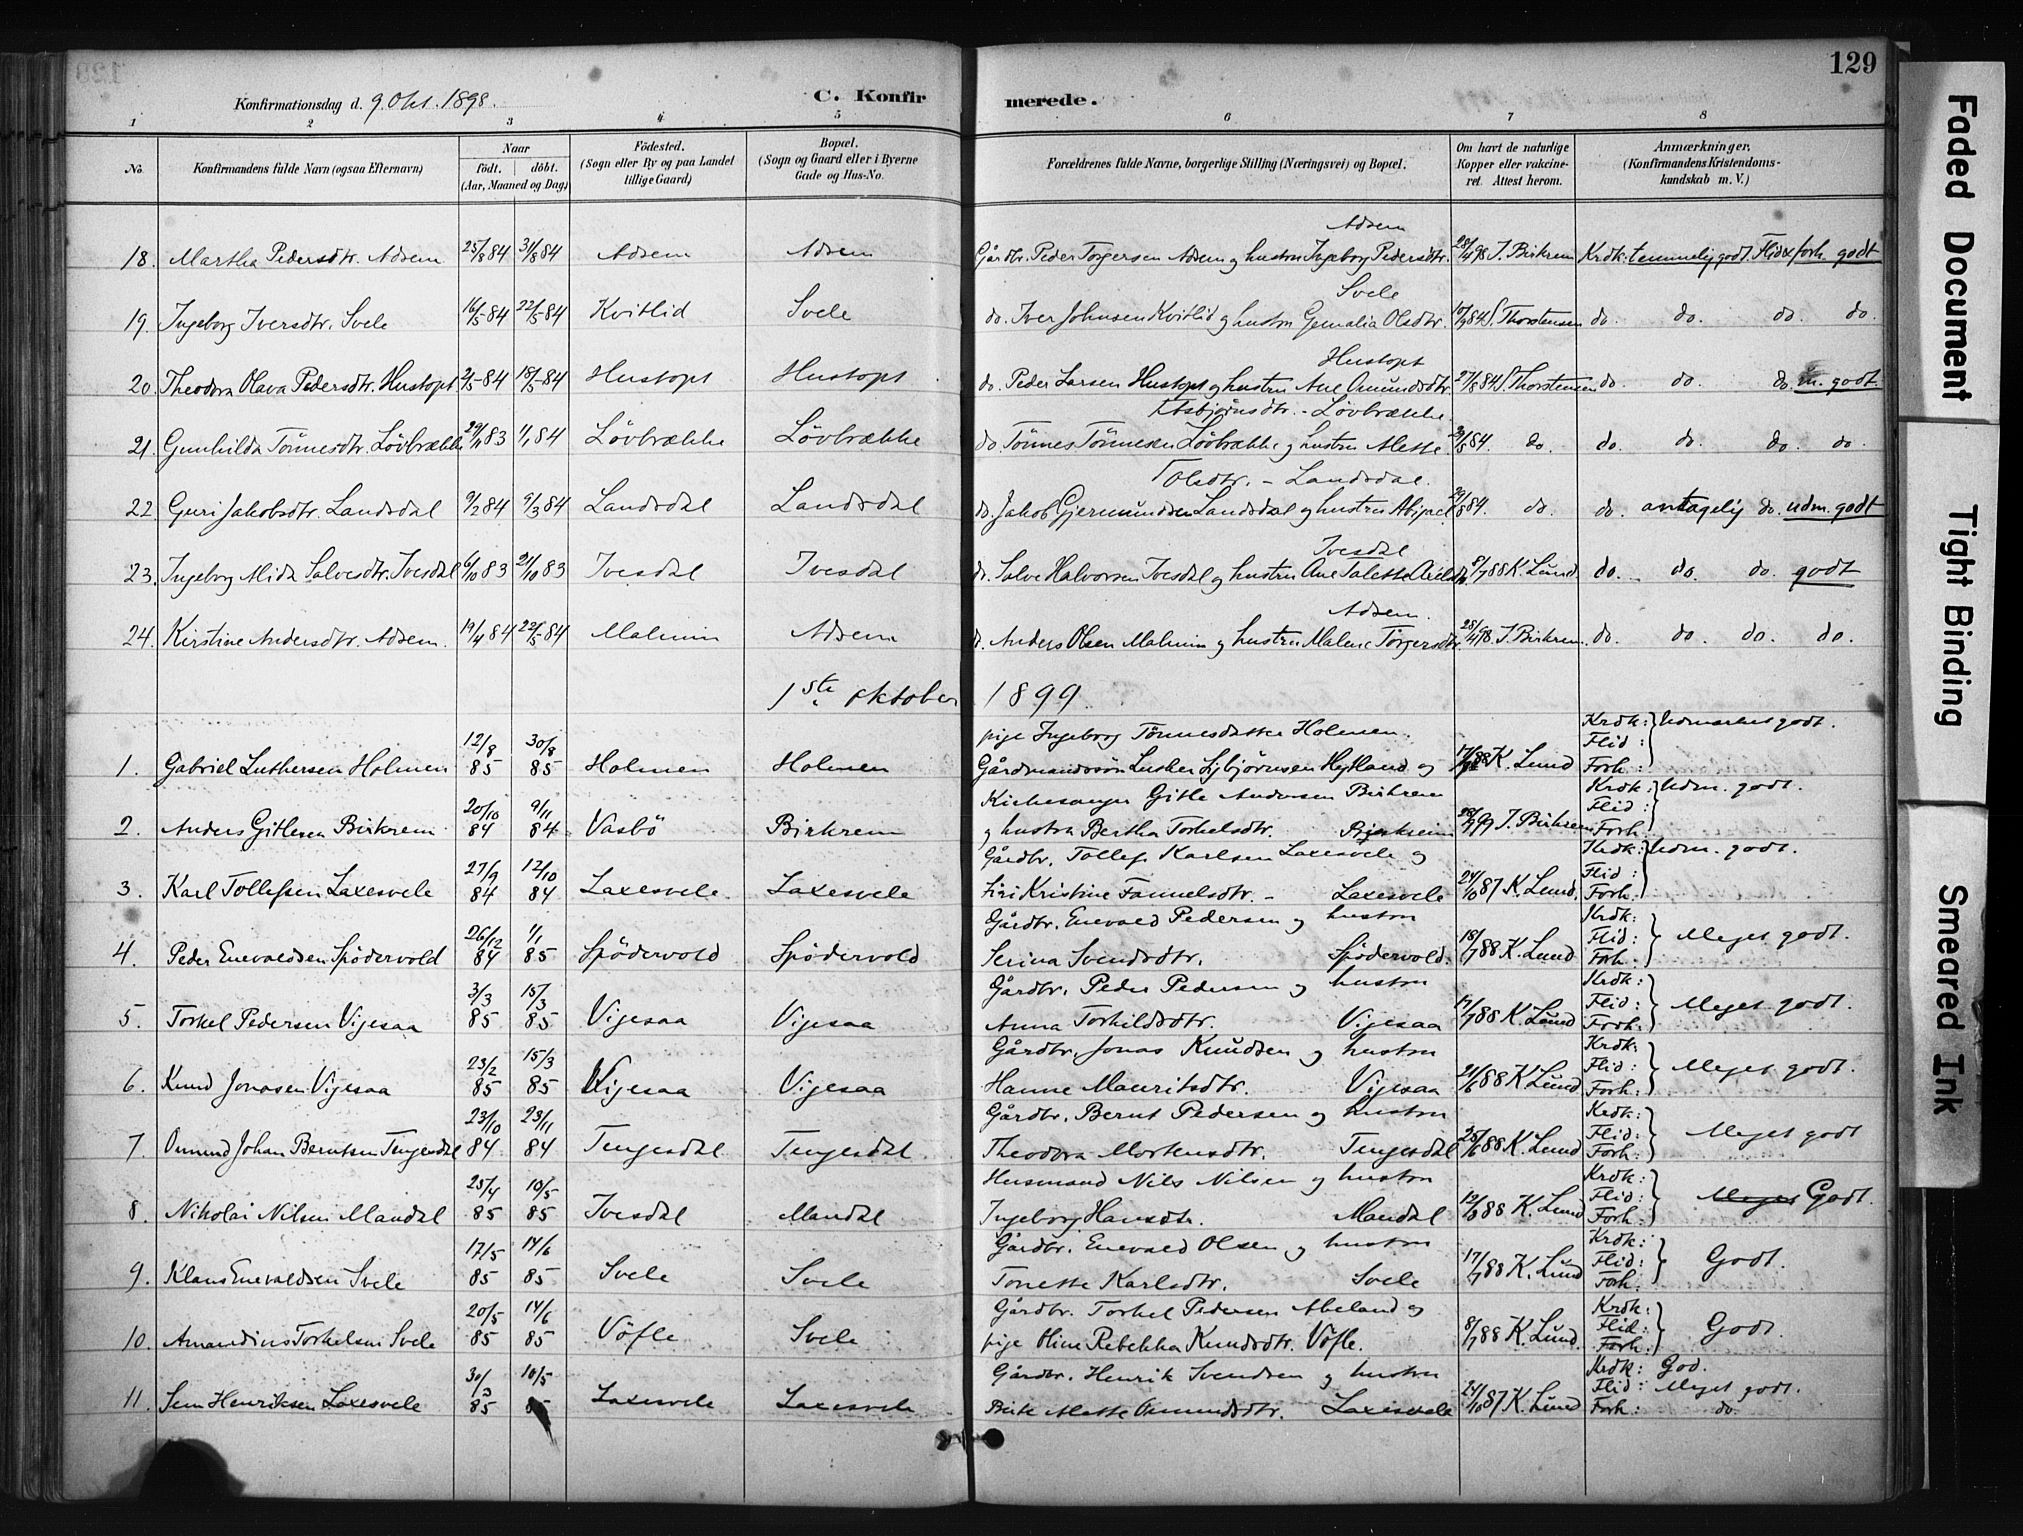 129
Konfirmationsdag d. 9. Okt. 1898.
C. Konfirmerede.
1 2 3 4 5 6 7 8
No. Konfirmandens fulde Navn (ogsaa Efternavn)
Naar født. døbt. (Aar, Maaned og Dag)
Födested. (Sogn eller By og paa Landet tillige Gaard)
Bopæl. (Sogn og Gaard eller i Byerne Gade og Hus-No.
Forældrenes fulde Navne, borgerlige Stilling (Næringsvei) og Bopæl.
Om havt de naturlige Kopper eller vakcineret. Attest herom.
Anmærkninger. (Konfirmandens Kristendomskundskab m. V.)
18. Martha Pedersdtr. Adsem 25/8 84 31/8 84 Adsem Adsem Gårdbr. Peder Torgersen Adsem og hustru Ingeborg Pedersdtr. Adsem 28/4 98 J. Birkrem Krdk: temmelig godt. Flid & forh. godt
19. Ingeborg Iversdtr. Svele 16/5 84 22/5 84 Kvitlid Svele do. Iver Johnsen Kvitlid og hustru Olsdtr. Svele S. Thorstensen do. do. do. do.
20. Theodora Olava Pedersdtr. Hustoft 2/5 84 18/5 84 Hustoft Hustoft do. Peder Larsen Hustoft og hustru Ane Amundsdtr. Hustoft 27/8 84 S. Thorstensen do. do. do. m. godt
21. Gunhilda Tönnesdtr. Lövbrække 83 1/1 84 Lövbrække Lövbrække do. Tönnes Tönnesen Lövbrække og hustru Alette Asbjörnsdtr. - Lövbrække 84. do. do. do. do. do.
22. Guri Jakobsdtr. Landsdal 9/2 84 9/3 84 Landsdal Landsdal do. Jakob Gjermundsen Landsdal og hustru Abigael Olsdtr. - Landsdal. 84. do. do. antagelig do. udm. godt
23. Ingeborg Alida Salvesdtr. Ivesdal 6/10 83 21/10 83 Ivesdal Ivesdal do. Salve Halvorsen Ivesdal og hustru Ane Talette Ivesdal 9/7 88 K. Lund do. do. do. godt
24. Kirstine Andersdtr. Adsem. 19/4 84 22/5 84 Malmin Adsem do. Anders Olsen Malmin og hustru Malene Torgersdtr. Adsem. 28/4 98. J. Birkrem. do. do. do. do.
1ste oktober 1899.
1. Gabriel Luthersen Holmen 12/8 85 30/8 85 Holmen Holmen pige Ingeborg Tönnesdatter Holmen. Gårdmandssön Luther Hytland og 88 K. Lund Krdk: Flid: Forh: Udmærket godt.
2. Anders Gitlesen Birkrem 20/10 84 9/11 84 Vasbö Birkrem Kirkesanger Gitle Andersen Birkrem og hustru Bertha Torkelsdtr. Bjerkreim 99 J. Birkrem Krdk: Flid: Forh. Udm. godt.
3. Karl Tollefsen Laxesvele 27/9 84 12/10 84 Laxesvele Laxesvele Gårdbr. Tollef Karlsen Laxesvele og Siri Kristine - Laxesvele 24/10 87 K. Lund. Krdk: Flid: Forh. Udm. godt.
4. Peder Enevaldsen Spödervold 26/12 84 1/1 85 Spödervold Spödervold Gårdbr. Enevald Pedersen og hustru Serina Svendsdtr. Spödervold. 18/7 88 K. Lund Krdk: Flid: Forh. Meget godt.
5. Torkel Pedersen Vigesaa 3/3 85 15/3 85 Vigesaa Vigesaa Gårdbr. Peder Pedersen og hustru Anna Torkildsdtr. Vigesaa 17/7 88 K. Lund Krdk: Flid: Forh. Meget godt.
6. Knud Jonasen Vigesaa 23/2 85 15/3 85 Vigesaa Vigesaa Gårdbr. Jonas Knudsen og hustru Hanne Mauritsdtr. Vigesaa 21/6 88 K. Lund Krdk: Flid: Forh: Meget godt.
7. Omund Johan Berntsen Tengesdal 23/10 84 23/11 84 Tengesdal Tengesdal. Gårdbr. Bernt Pedersen og hustru Theodora Mortensdtr. Tengesdal 25/6 88 K. Lund Krdk: Flid: Forh. Meget godt
8. Nikolai Nilsen Mandal 25/4 85 10/5 85 Ivesdal Mandal Husmand Nils Nilsen og hustru Ingeborg Hansdtr. Mandal 88 K. Lund Krdk: Flid: Forh. Meget Godt.
9. Klaus Enevaldsen Svele 17/5 85 14/6 85 Svele Svele Gårdbr. Enevald Olsen og hustru Tonette Karlsdtr. Svele 17/7 88 K. Lund Krdk: Flid: Forh. Godt.
10. Amandius Torkelsen Svele 20/5 85 14/6 85 Vöfle Svele Gårdbr. Torkel Pedersen Abeland og pige Oline Rebekka Knudsdtr. Vöfle. 8/7 88 K. Lund. Krdk: Flid: Forh. Godt.
11. Sem Henriksen Laxesvele 30/3 85 10/5 85 Laxesvele Laxesvele Gårdbr. Henrik Svendsen og hustru Berte Alette Omundsdtr. Laxesvele 24/10 87 K. Lund Krdk: God. Flid: Meget godt. Forh: do.
Faded Document
Tight Binding
Smeared Ink